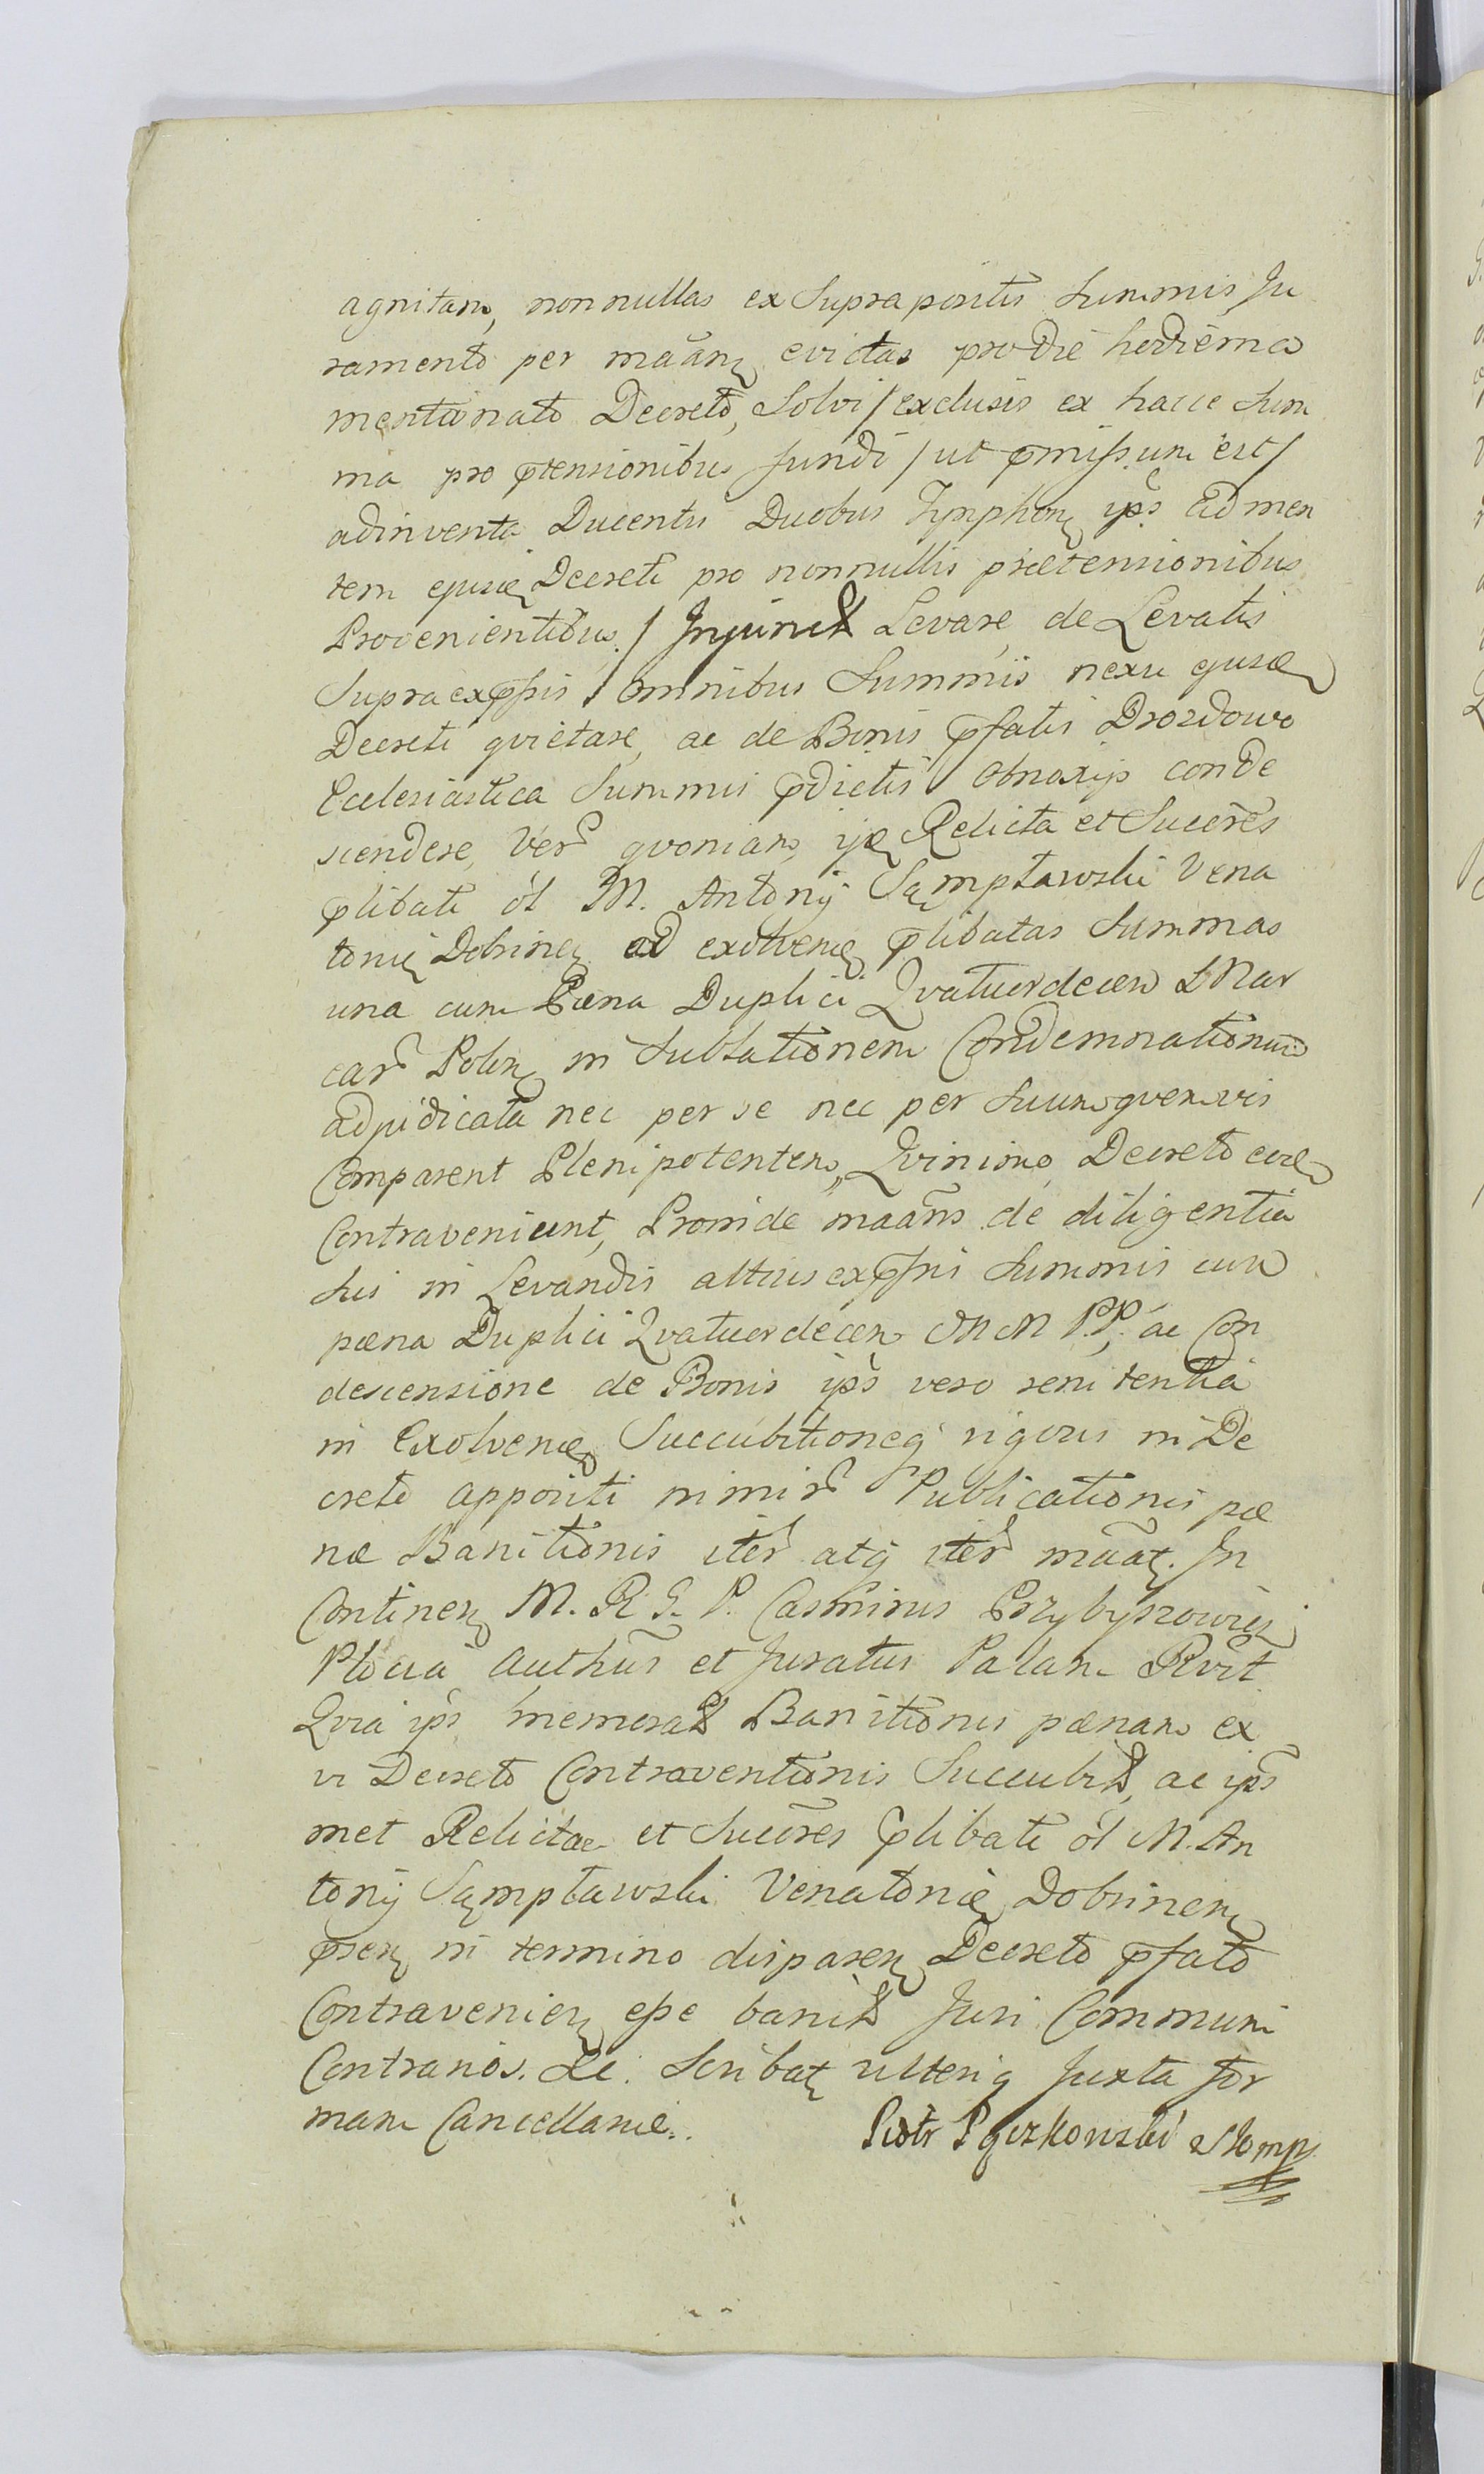 agnitam, nonnullas ex Supra positis Summis Ju
ramento per maãn evictas pro die hodierna
mentionato Decreto, Solvi / exclusis ex hacce Sum
ma pro p̃tensionibus fundi / ut p̃missum est /
adinventa Ducentis Duobus Tynphon ip̃s ad men
tem ejusd Decreti pro nonnullis prætensionibus
Provenientibus / Injunx Levare, de Levatis
Supra exp̃ssis omnibus Summis nexu ejusd
Decreti qvietare, ac de Bonis p̃fatis Drozdowo
Ecclesiastica Summis p̃dictis Obnoxijs conde
scendere, Ver̃ qvoniam, ijd Relicta et Succr̃es
p̃libati ol M. Antonij Sampławski Vena
toris Dobrinen ad exolvend p̃libatas Summas
una cum Pæna Duplici Qvatuordecem Mar
car̃ Poln in Sublationem Condemnationum
adjudicata nec per se nec per Suum qvemvis
Comparent Plenipotentem, Qvinimo Decreto eid
Contraveniunt, Proinde maãns de diligentia
Sui in Levandis altius exp̃ssis Summis cum
pæna Duplici Qvatuordecem M M P.P. ac Con
descensione de Bonis ip̃s vero renitentia
in Exolvend Succubitioneq rigoris in De
creto appositi nimir̃ Publicationis pæ
næ Banitionis iter̃ atq iter̃ mãat. In
Continen M. R G. P. Casimirus Przybyszowicz
Plocia Authus̃ et Juratus Palam Rvit
Qvia ip̃s memorat Banitionis pænam ex
vi Decreto Contraventionis Succubit, ac ip̃s
met Relictæ et Succr̃es p̃libati ol M. An
tonij Sampławski Venatoris Dobrinen
p̃sen in termino disparen Decreto p̃fato
Contravenien esse banit Juri Communi
Contrarios. &c. Scribat ulteriq Juxta for
mam Cancellariæ.
Piotr Pączkowski